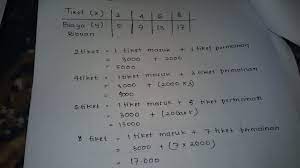 Tiket (x) | 2 | 4 | 6 | 8
Biaya (y) | 5 | 9 | 13 | 17
Ribuan
2 tiket = 1 tiket masuk + 1 tiket permainan
= 3000 + 2000
= 5000
4 tiket = 1 tiket masuk + 3 tiket permainan
= 3000 + (2000 x 3)
= 9000
6 tiket = 1 tiket masuk + 5 tiket permainan
= 3000 + (2000 x 5)
= 13000
8 tiket = 1 tiket masuk + 7 tiket permainan
= 3000 + (7 x 2000)
= 17.000